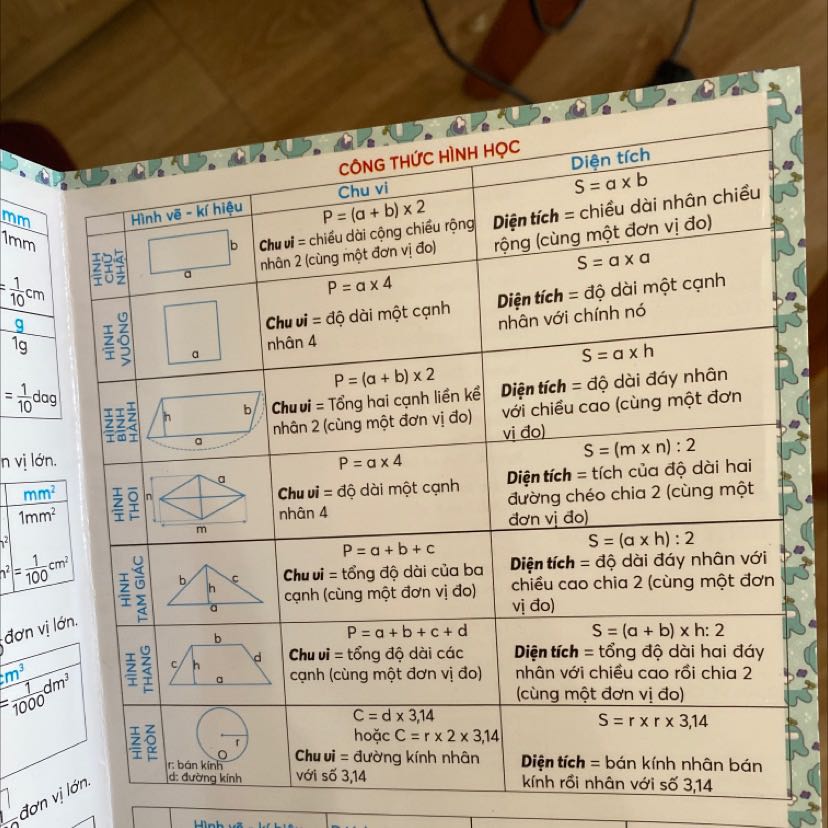 mm
1mm
= 1/10 cm
g
1g
= 1/10 dag
n vị lớn.
mm²
1mm²
= 1/100 cm²
đơn vị lớn.
m³
= 1/1000 dm³
đơn vị lớn.
CÔNG THỨC HÌNH HỌC
Hình vẽ - kí hiệu
Chu vi
Diện tích
HÌNH
CHỮ
NHẬT
b
a
P = (a + b) x 2
Chu vi = chiều dài cộng chiều rộng
nhân 2 (cùng một đơn vị đo)
S = a x b
Diện tích = chiều dài nhân chiều
rộng (cùng một đơn vị đo)
HÌNH
VUÔNG
a
P = a x 4
Chu vi = độ dài một cạnh
nhân 4
S = a x a
Diện tích = độ dài một cạnh
nhân với chính nó
HÌNH
BÌNH
HÀNH
h
b
a
P = (a + b) x 2
Chu vi = Tổng hai cạnh liền kề
nhân 2 (cùng một đơn vị đo)
S = a x h
Diện tích = độ dài đáy nhân
với chiều cao (cùng một đơn
vị đo)
HÌNH
THOI
a
n
m
P = a x 4
Chu vi = độ dài một cạnh
nhân 4
S = (m x n) : 2
Diện tích = tích của độ dài hai
đường chéo chia 2 (cùng một
đơn vị đo)
HÌNH
TAM GIÁC
b
c
h
a
P = a + b + c
Chu vi = tổng độ dài của ba
cạnh (cùng một đơn vị đo)
S = (a x h) : 2
Diện tích = độ dài đáy nhân với
chiều cao chia 2 (cùng một đơn
vị đo)
HÌNH
THANG
b
c
h
d
a
P = a + b + c + d
Chu vi = tổng độ dài các
cạnh (cùng một đơn vị đo)
S = (a + b) x h: 2
Diện tích = tổng độ dài hai đáy
nhân với chiều cao rồi chia 2
(cùng một đơn vị đo)
HÌNH
TRÒN
r
O
r: bán kính
d: đường kính
C = d x 3,14
hoặc C = r x 2 x 3,14
Chu vi = đường kính nhân
với số 3,14
S = r x r x 3,14
Diện tích = bán kính nhân bán
kính rồi nhân với số 3,14
Hình vẽ